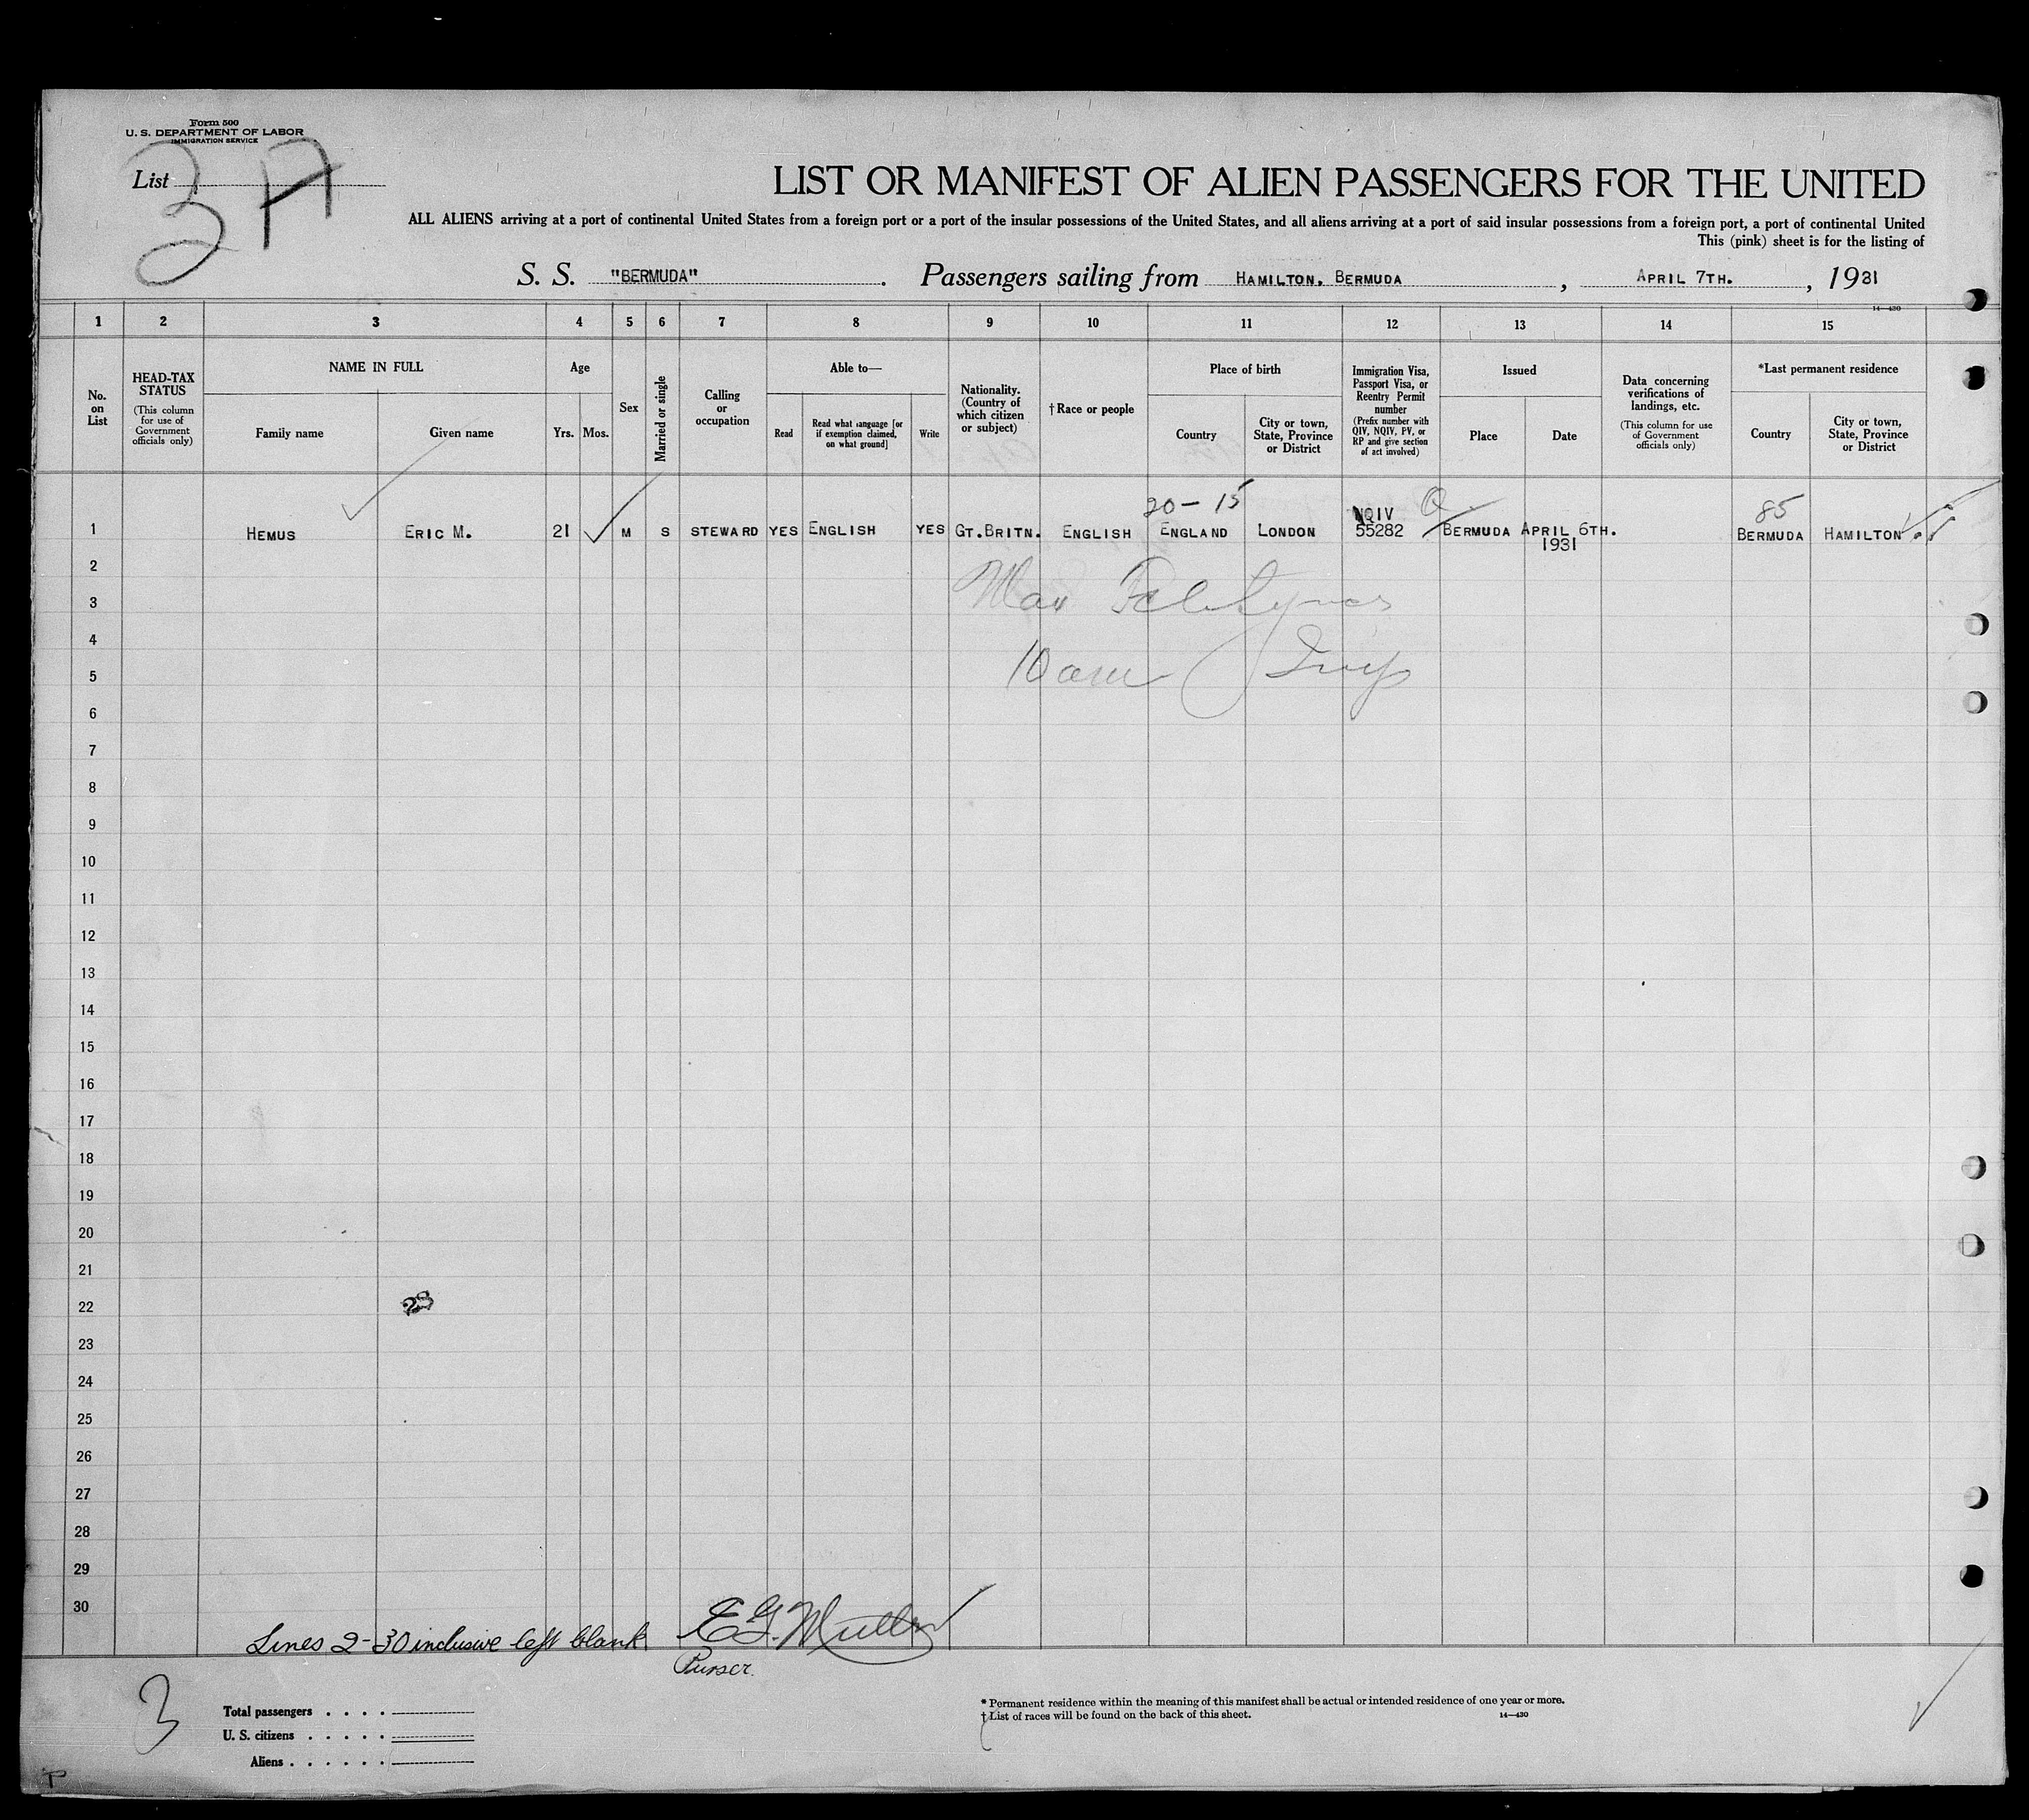 Form 500
U. S. DEPARTMENT OF LABOR
IMMIGRATION SERVICE
List 3 A
LIST OR MANIFEST OF ALIEN PASSENGERS FOR THE UNITED
ALL ALIENS arriving at a port of continental United States from a foreign port or a port of the insular possessions of the United States, and all aliens arriving at a port of said insular possessions from a foreign port, a port of continental United
This (pink) sheet is for the listing of
S. S. "BERMUDA". Passengers sailing from HAMILTON, BERMUDA, APRIL 7TH., 1931
14—430
1 2 3 4 5 6 7 8 9 10 11 12 13 14 15
No. on List
HEAD-TAX STATUS
(This column for use of Government officials only)
NAME IN FULL
Family name
Given name
Age
Yrs. Mos.
Sex
Married or single
Calling or occupation
Able to—
Read
Read what language [or if exemption claimed, on what ground]
Write
Nationality. (Country of which citizen or subject)
†Race or people
Place of birth
Country
City or town, State, Province or District
Immigration Visa, Passport Visa, or Reentry Permit number
(Prefix number with QIV, NQIV, PV, or RP and give section of act involved)
Issued
Place
Date
Data concerning verifications of landings, etc.
(This column for use of Government officials only)
*Last permanent residence
Country
City or town, State, Province or District
20-15 NQIV Q 85
1 HEMUS ERIC M. 21 M S STEWARD YES ENGLISH YES GT.BRITN. ENGLISH ENGLAND LONDON 55282 BERMUDA APRIL 6TH. BERMUDA HAMILTON
1931
2
3
4
10 am Insp
5
6
7
8
9
10
11
12
13
14
15
16
17
18
19
20
21
22
23
24
25
26
27
28
29
30
Lines 2-30 inclusive left blank.
Purser.
3
Total passengers . . . .
U. S. citizens . . . . .
Aliens . . . . . .
* Permanent residence within the meaning of this manifest shall be actual or intended residence of one year or more.
† List of races will be found on the back of this sheet.
14—430